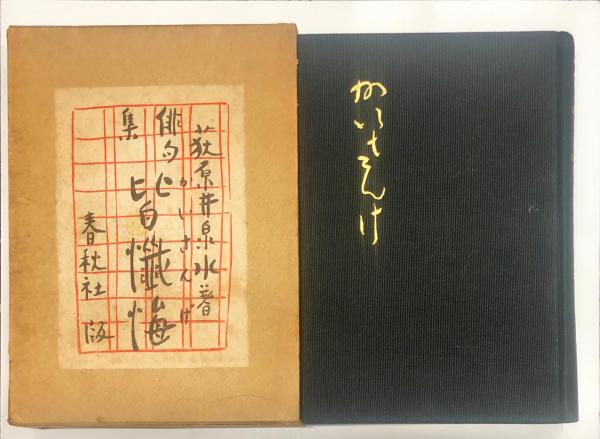 荻原井泉水著
俳句
集
皆懺悔
かいさんげ
春秋社版
かいさんけ